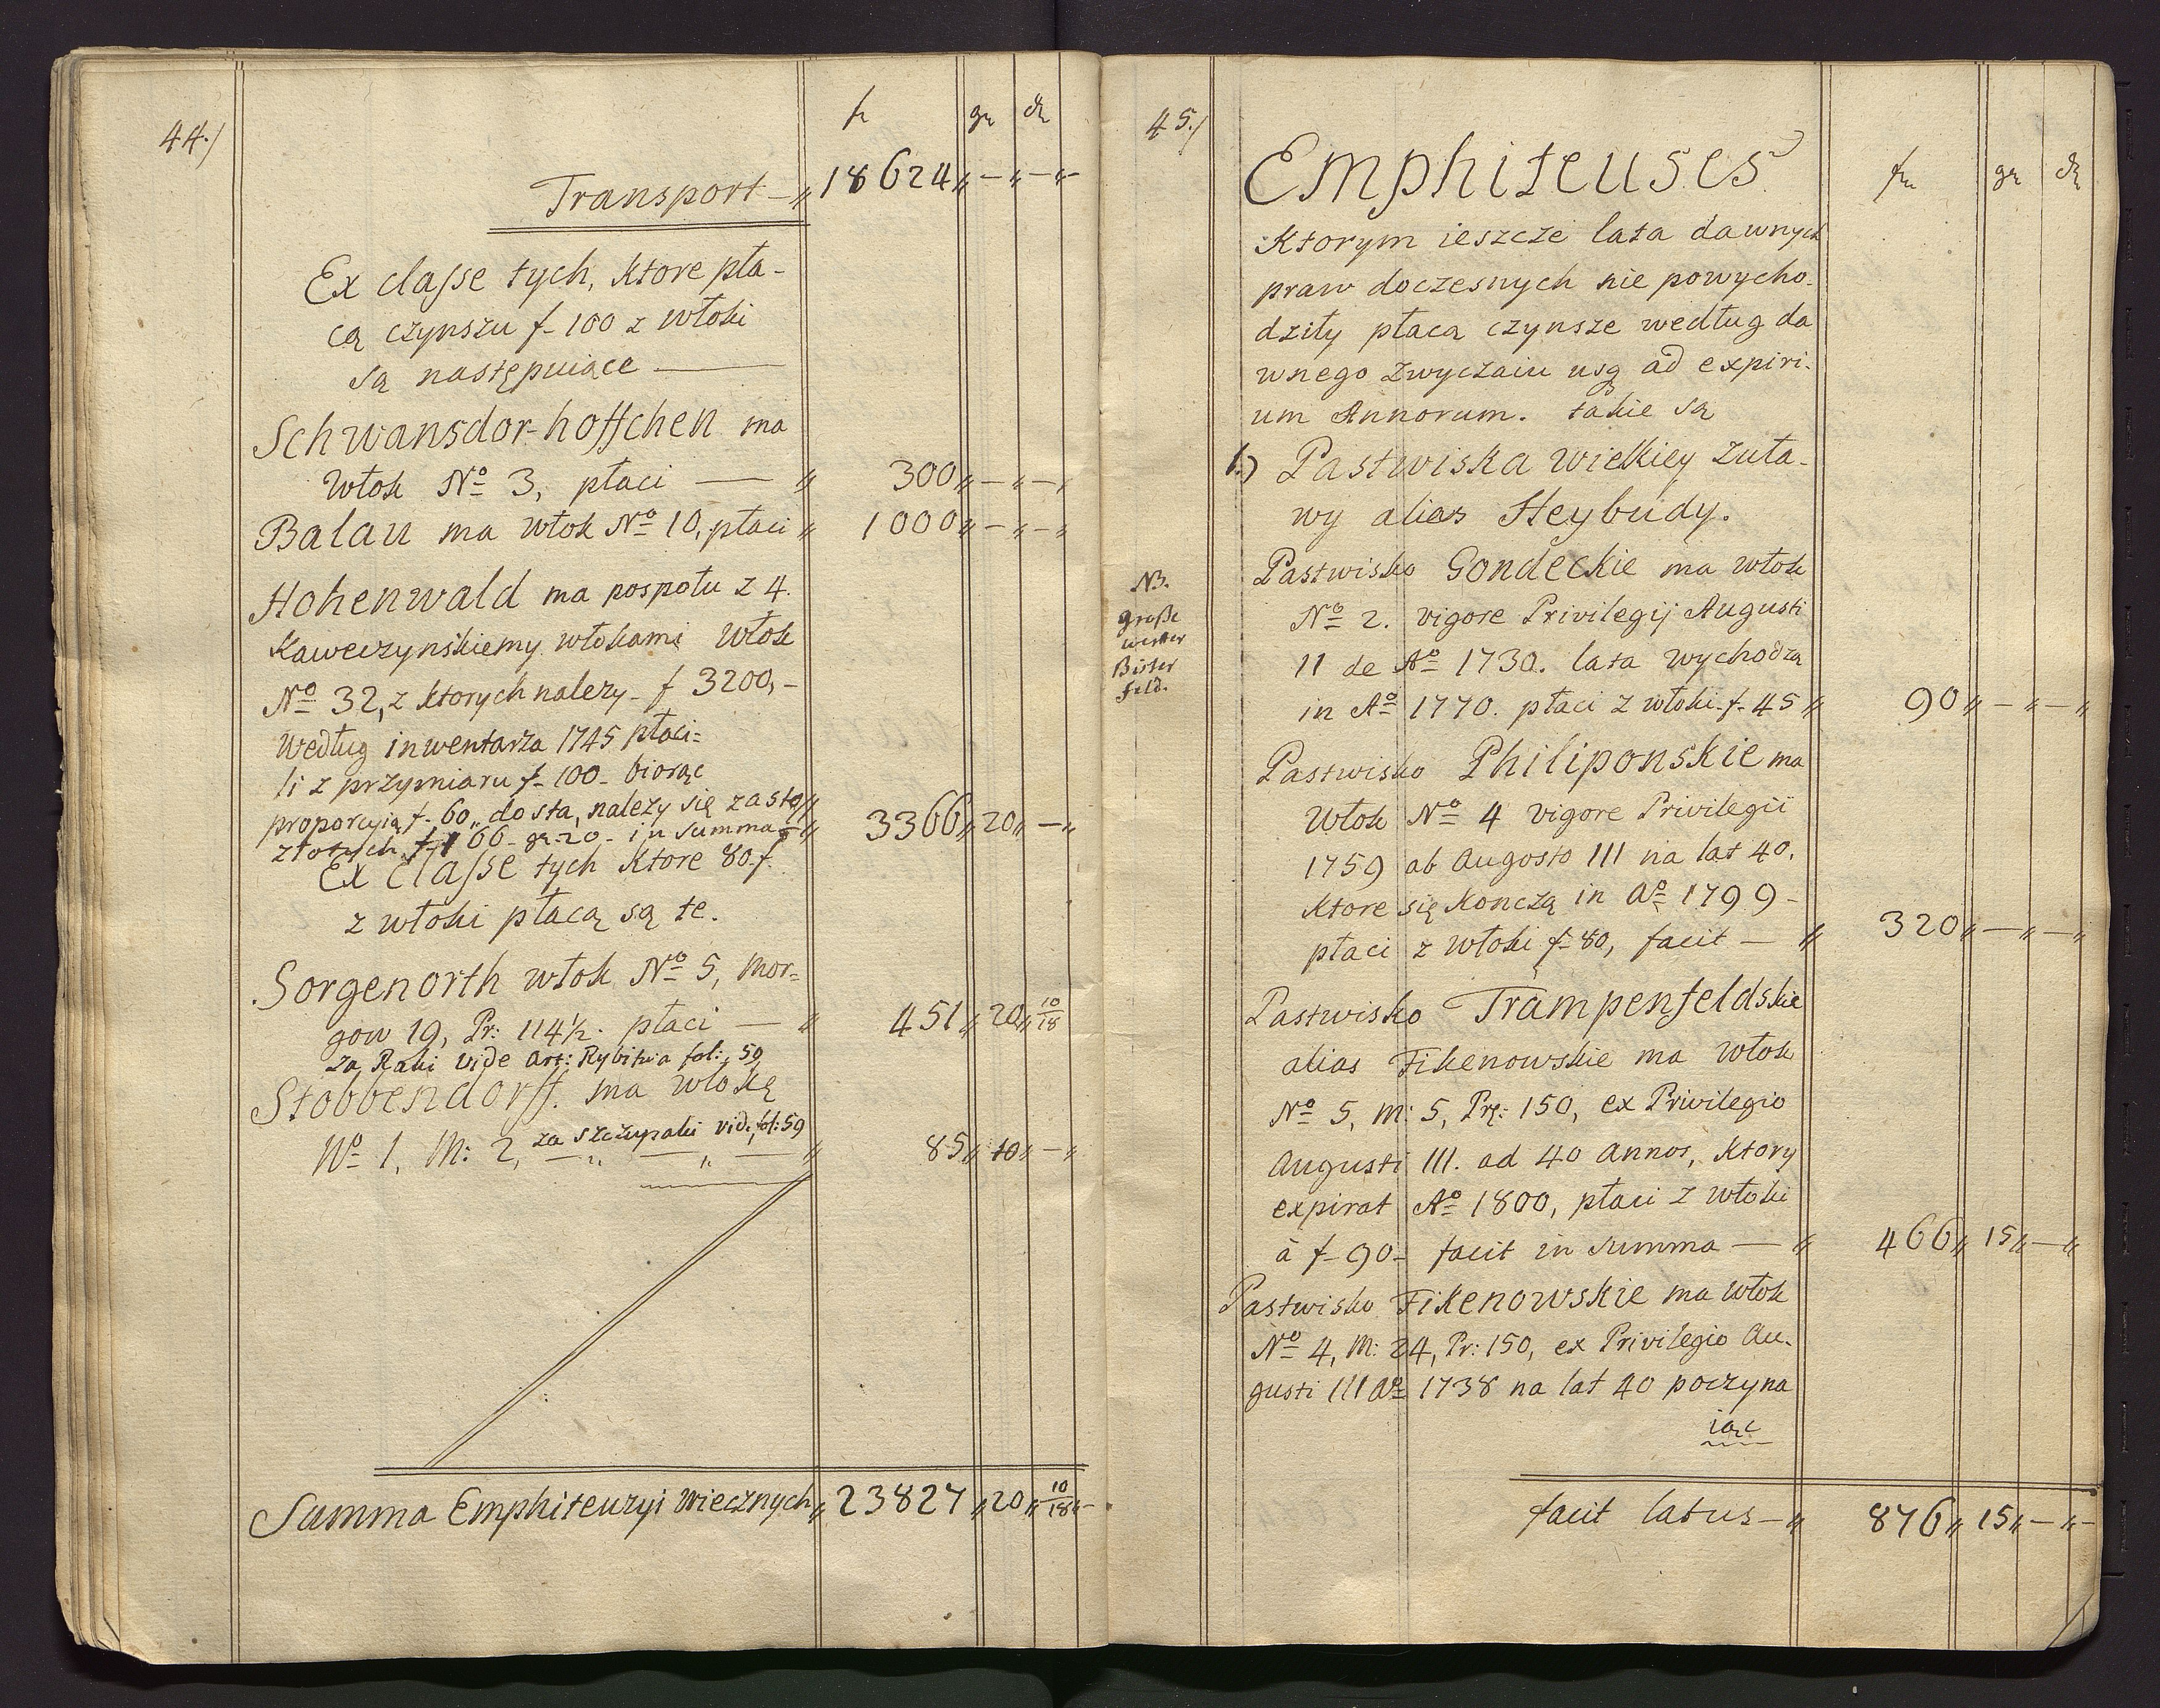 44./
f gr d
Transport —„ 18624„—„—„—
Ex classe tych, ktore pła-
cą czynszu f- 100 z włoki
są następuiące —
Schwansdor-hoffchen ma
włok No 3, płaci — „ 300„—„—„
Balau ma włok No 10, płaci „ 1000„—„—„
Hohenwald ma pospołu z 4.
Kaweczynskiemy włokami włok
No 32, z ktorych nalezy - f 3200,-
według inwentarza 1745 płaci=
li z przymiaru f- 100- biorąc
proporcyią f- 60„ do sta, nalezy się za sto„
złotych f 166 - gr: 20 - in summa -„ 3366„20„—„
Ex classe tych ktore 80 f.
z włoki płacą są te.
Sorgenorth włok No 5, mor=
gow 19, Pr: 114½. płaci — „ 451„20„10/18
za Raki vide Art: Rybitwa fol: 59
Stobbendorff. ma włokę
No 1, M: 2, za szczupaki vide fol: 59
—„—„—„ 85„10„—„
Summa Emphiteuzyi wiecznych„ 23827„20„10/18„-
45./
fn gr d
Emphiteuses
Ktorym ieszcze lata dawnych
praw doczesnych nie powycho-
dziły płacą czynsze według da
wnego zwyczaiu usq ad expiri-
um Annorum. takie są
1.) Pastwiska wielkiey Zuła-
wy alias Heybudy.
Pastwisko Gondeckie ma włok
NB.
Große
werder
Bister
feld.
No 2. vigore Privilegij Augusti
II de Ao 1730. lata wychodzą
in Ao 1770. płaci z włoki f- 45„ 90„—„—„
Pastwisko Philiponskie ma
włok No 4 vigore Privilegii
1759 ab Augosto III na lat 40,
ktore się konczą in Ao 1799-
płaci z włoki f- 80, facit — „ 320„—„—„
Pastwisko Trampenfeldskie
alias Fikenowskie ma włok
No 5, M: 5, Prę: 150, ex Privilegio
Augusti III. ad 40 annos, ktory
expirat Ao 1800, płaci z włoki
à f- 90- facit in summa — „ 466„15„—„
Pastwisko Fikenowskie ma włok
No 4, M: 24, Pr: 150, ex Privilegio Au-
gusti III Ao 1738 na lat 40 poczyna
iąc
facit latus —„ 876„15„—„-